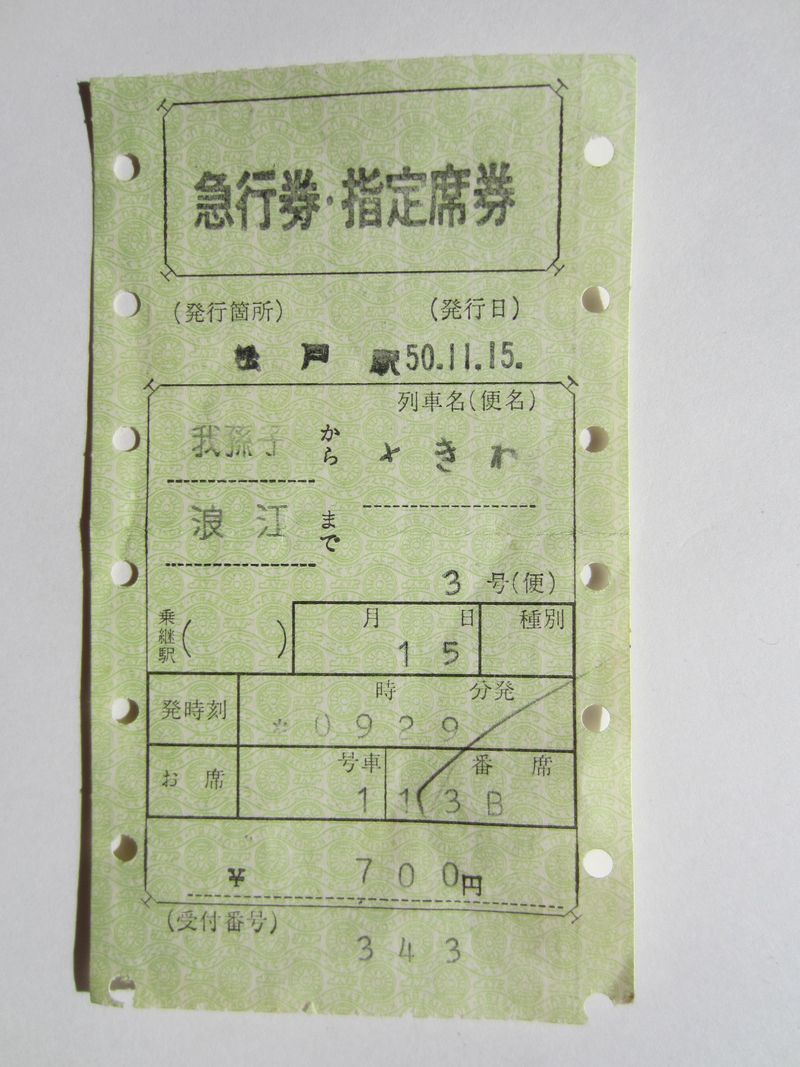 急行券・指定席券
(発行箇所) (発行日)
松戸駅 50.11.15.
列車名(便名)
我孫子から ときわ
浪江まで
3 号(便)
乗継駅( ) 月 日 種別
15
時 分発
発時刻 *0929
号車 番 席
お席 1 13B
¥ 700円
(受付番号)
343